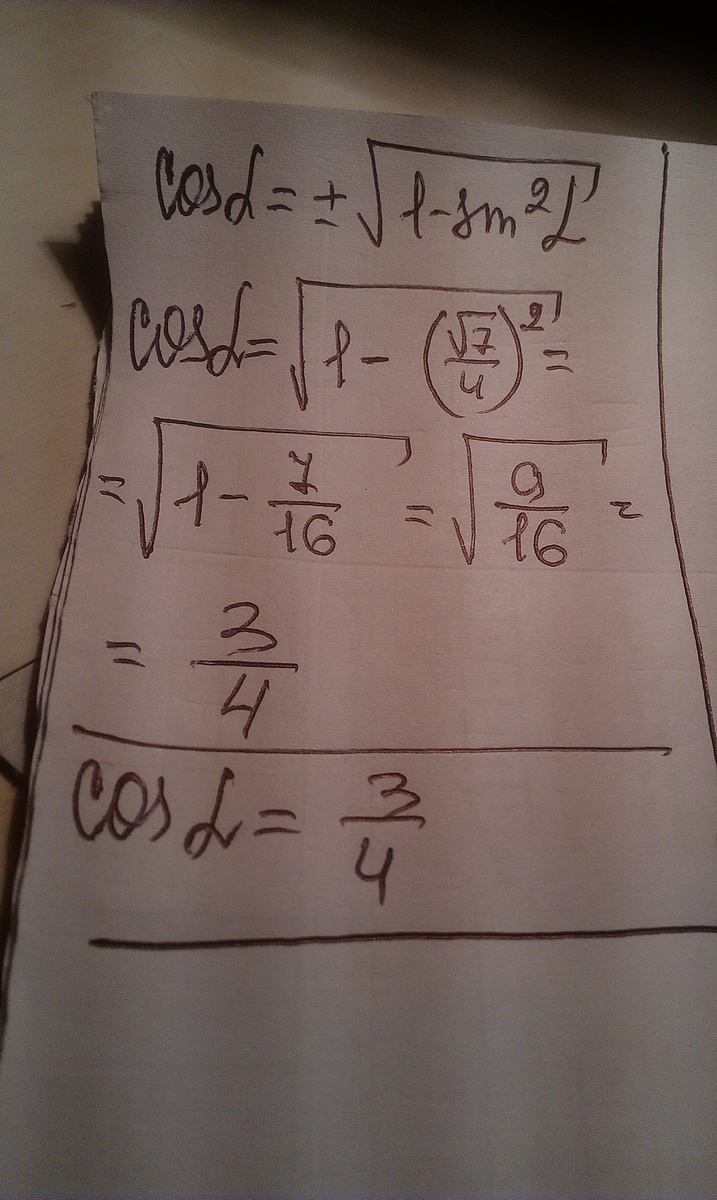 cos α = ± √(1 - sin² α)
cos α = √(1 - (√7/4)²) =
= √(1 - 7/16) = √(9/16) =
= 3/4
cos α = 3/4